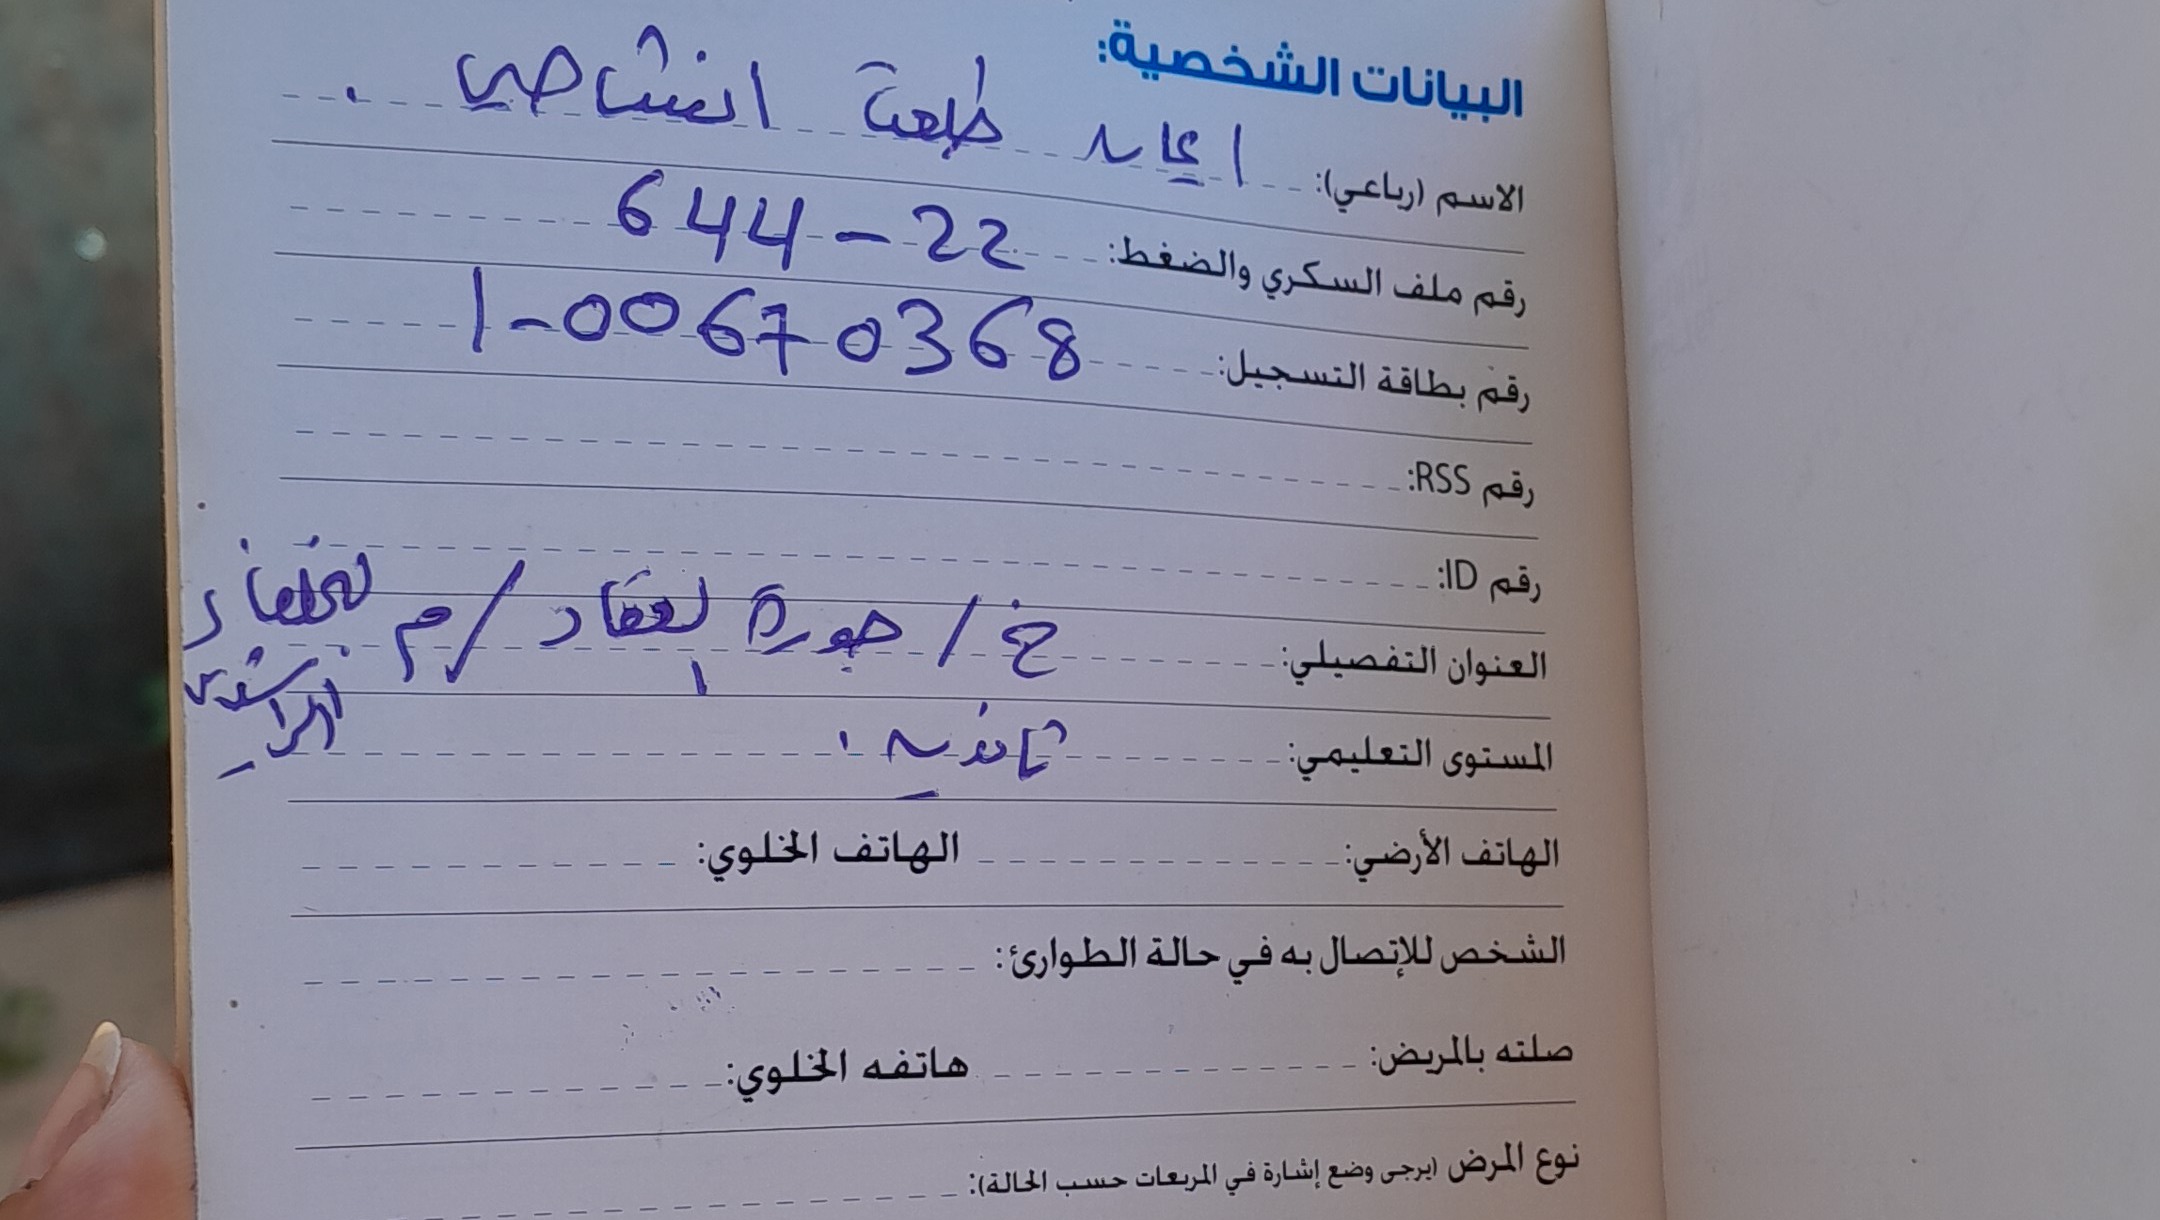 البيانات الشخصية:
الاسم (رباعي): طلعت
رقم ملف السكري والضغط: 644-22
رقم بطاقة التسجيل: 1-00670368
رقم RSS:
رقم ID:
العنوان التفصيلي: خ / جورة العقاد / م الخلفاء
الراشدين
المستوى التعليمي: ثانوية.
الهاتف الأرضي: الهاتف الخلوي:
الشخص للإتصال به في حالة الطوارئ:
صلته بالمريض: هاتفه الخلوي:
نوع المرض (يرجى وضع إشارة في المربعات حسب الحالة):